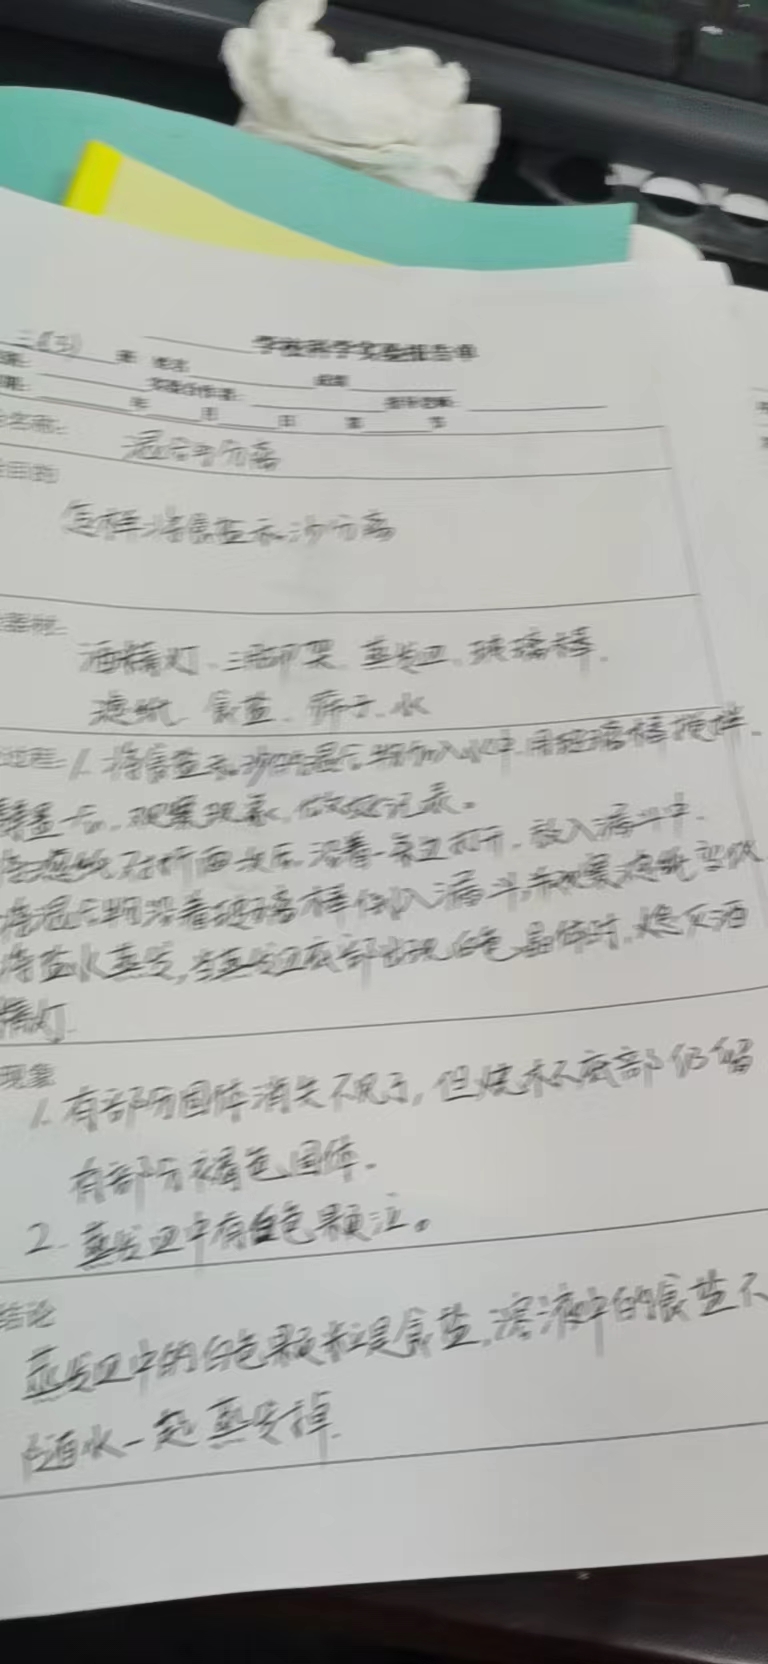 三(3)
学校科学实验报告单
年 月 日 第 节
名称: 混合与分离
目的
怎样将食盐和沙分离
器材: 酒精灯、三脚架、蒸发皿、玻璃棒、
滤纸、食盐、筛子、水
过程: 1. 将食盐和沙的混合物加入水中,用玻璃棒搅拌,
静置一会,观察现象,做好记录。
将滤纸对折两次后,沿着一条边打开,放入漏斗中,
将混合物沿着玻璃棒倒入漏斗,并观察滤纸
将盐水蒸发,当蒸发皿底部出现白色晶体时,熄灭酒
精灯.
现象
1. 有部分固体消失不见了,但烧杯底部仍留
有部分褐色固体.
2. 蒸发皿中有白色颗粒。
结论
蒸发皿中的白色颗粒是食盐,溶液中的食盐不
随水一起蒸发掉.